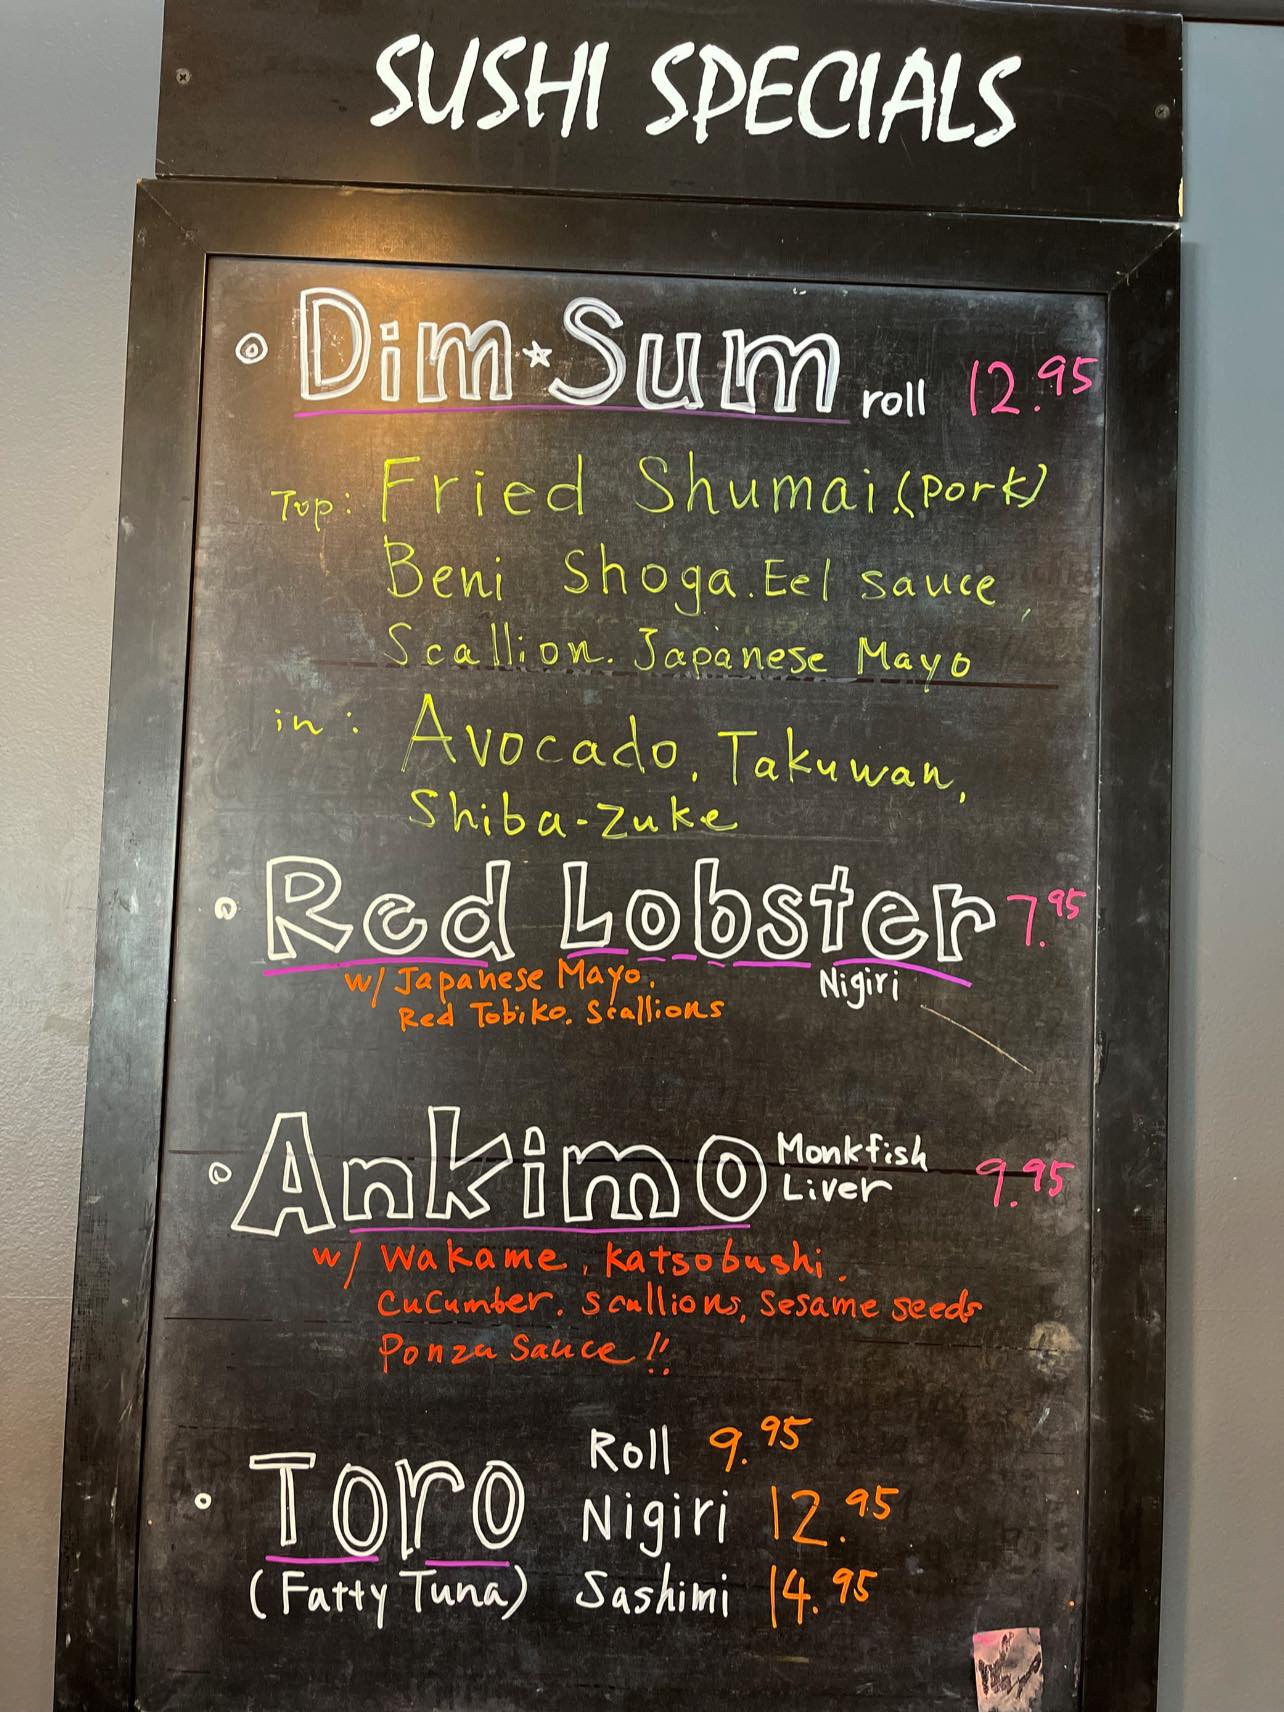 SUSHI SPECIALS
Dim★Sum roll 12.95
Top: Fried Shumai.(Pork)
Beni Shoga. Eel Sauce,
Scallion. Japanese Mayo
in: Avocado, Takuwan,
Shiba-zuke
Red Lobster 7.95
w/ Japanese Mayo. Nigiri
Red Tobiko. Scallions
Ankimo Monkfish Liver 9.95
w/ Wakame, Katsobushi.
Cucumber. Scallions, Sesame seeds
Ponzu Sauce!!
Toro Roll 9.95
Nigiri 12.95
(Fatty Tuna) Sashimi 14.95